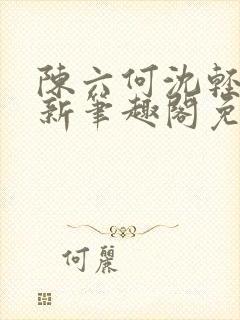 陳六何沈輕
新筆趣閣免
何麗